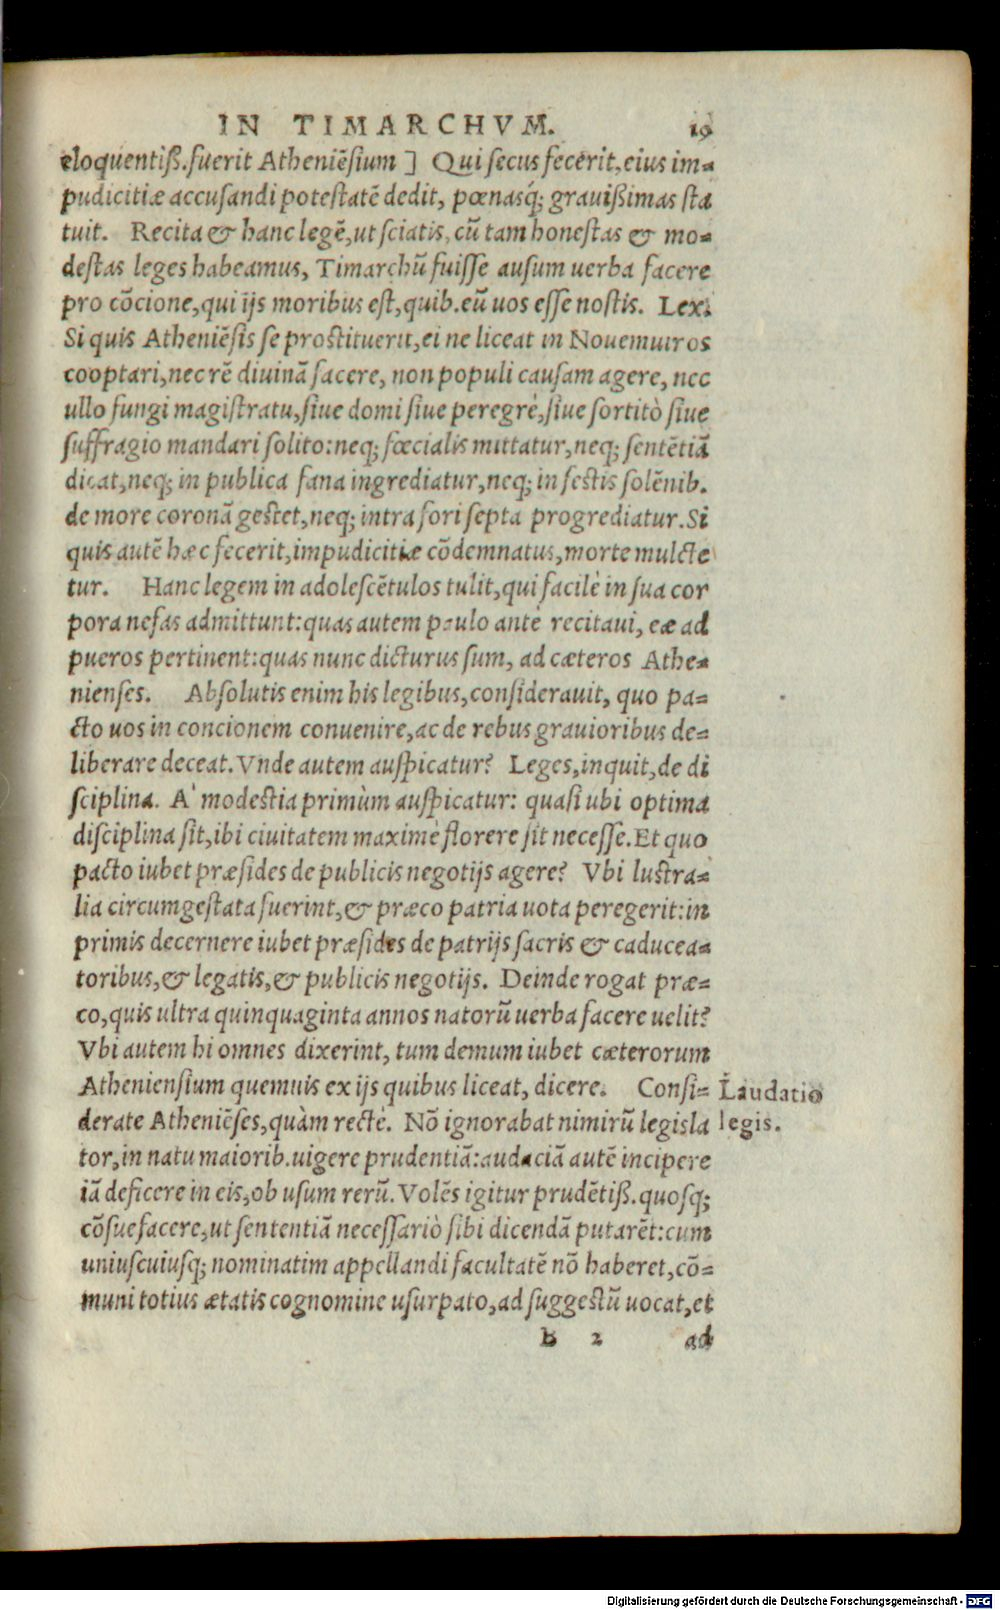 IN TIMARCHVM. 19
eloquentiß.fuerit Atheniẽsium ] Qui secus fecerit,eius im-
pudicitiæ accusandi potestatẽ dedit, pœnasq́; grauißimas sta
tuit. Recita & hanc legẽ,ut sciatis, cũ tam honestas & mo-
destas leges habeamus, Timarchũ fuisse ausum uerba facere
pro cõcione,qui ijs moribus est,quib.eũ uos esse nostis. Lex.
Si quis Atheniẽsis se prostituerit,ei ne liceat in Nouemuiros
cooptari,nec rẽ diuinã facere, non populi causam agere, nec
ullo fungi magistratu,siue domi siue peregrè,siue sortitò siue
suffragio mandari solito:neq; fœcialis mittatur,neq; sentẽtiã
dicat,neq; in publica fana ingrediatur,neq; in festis solẽnib.
de more coronã gestet,neq; intra fori septa progrediatur.Si
quis autẽ hæc fecerit,impudicitiæ cõdemnatus,morte mulcte
tur. Hanc legem in adolescẽtulos tulit,qui facilè in sua cor
pora nefas admittunt:quas autem paulo antè recitaui, eæ ad
pueros pertinent:quas nunc dicturus sum, ad cæteros Athe-
nienses. Absolutis enim his legibus,considerauit, quo pa-
cto uos in concionem conuenire,ac de rebus grauioribus de-
liberare deceat.Vnde autem auspicatur? Leges,inquit,de di
sciplina. A' modestia primùm auspicatur: quasi ubi optima
disciplina sit,ibi ciuitatem maximè florere sit necesse.Et quo
pacto iubet præsides de publicis negotijs agere? Vbi lustra-
lia circumgestata fuerint,& præco patria uota peregerit:in
primis decernere iubet præsides de patrijs sacris & caducea-
toribus,& legatis,& publicis negotijs. Deinde rogat præ-
co,quis ultra quinquaginta annos natorũ uerba facere uelit?
Vbi autem hi omnes dixerint, tum demum iubet cæterorum
Atheniensium quemuis ex ijs quibus liceat, dicere. Consi- Laudatio
derate Atheniẽses,quàm rectè. Nõ ignorabat nimirũ legisla legis.
tor,in natu maiorib.uigere prudentiã:audaciã autẽ incipere
iã deficere in eis,ob usum rerũ.Volẽs igitur prudẽtiß.quosq;
cõsuefacere,ut sententiã necessariò sibi dicendã putarẽt:cum
uniuscuiusq; nominatim appellandi facultatẽ nõ haberet,cõ-
muni totius ætatis cognomine usurpato,ad suggestũ uocat,et
B 2 ad
Digitalisierung gefördert durch die Deutsche Forschungsgemeinschaft - DFG